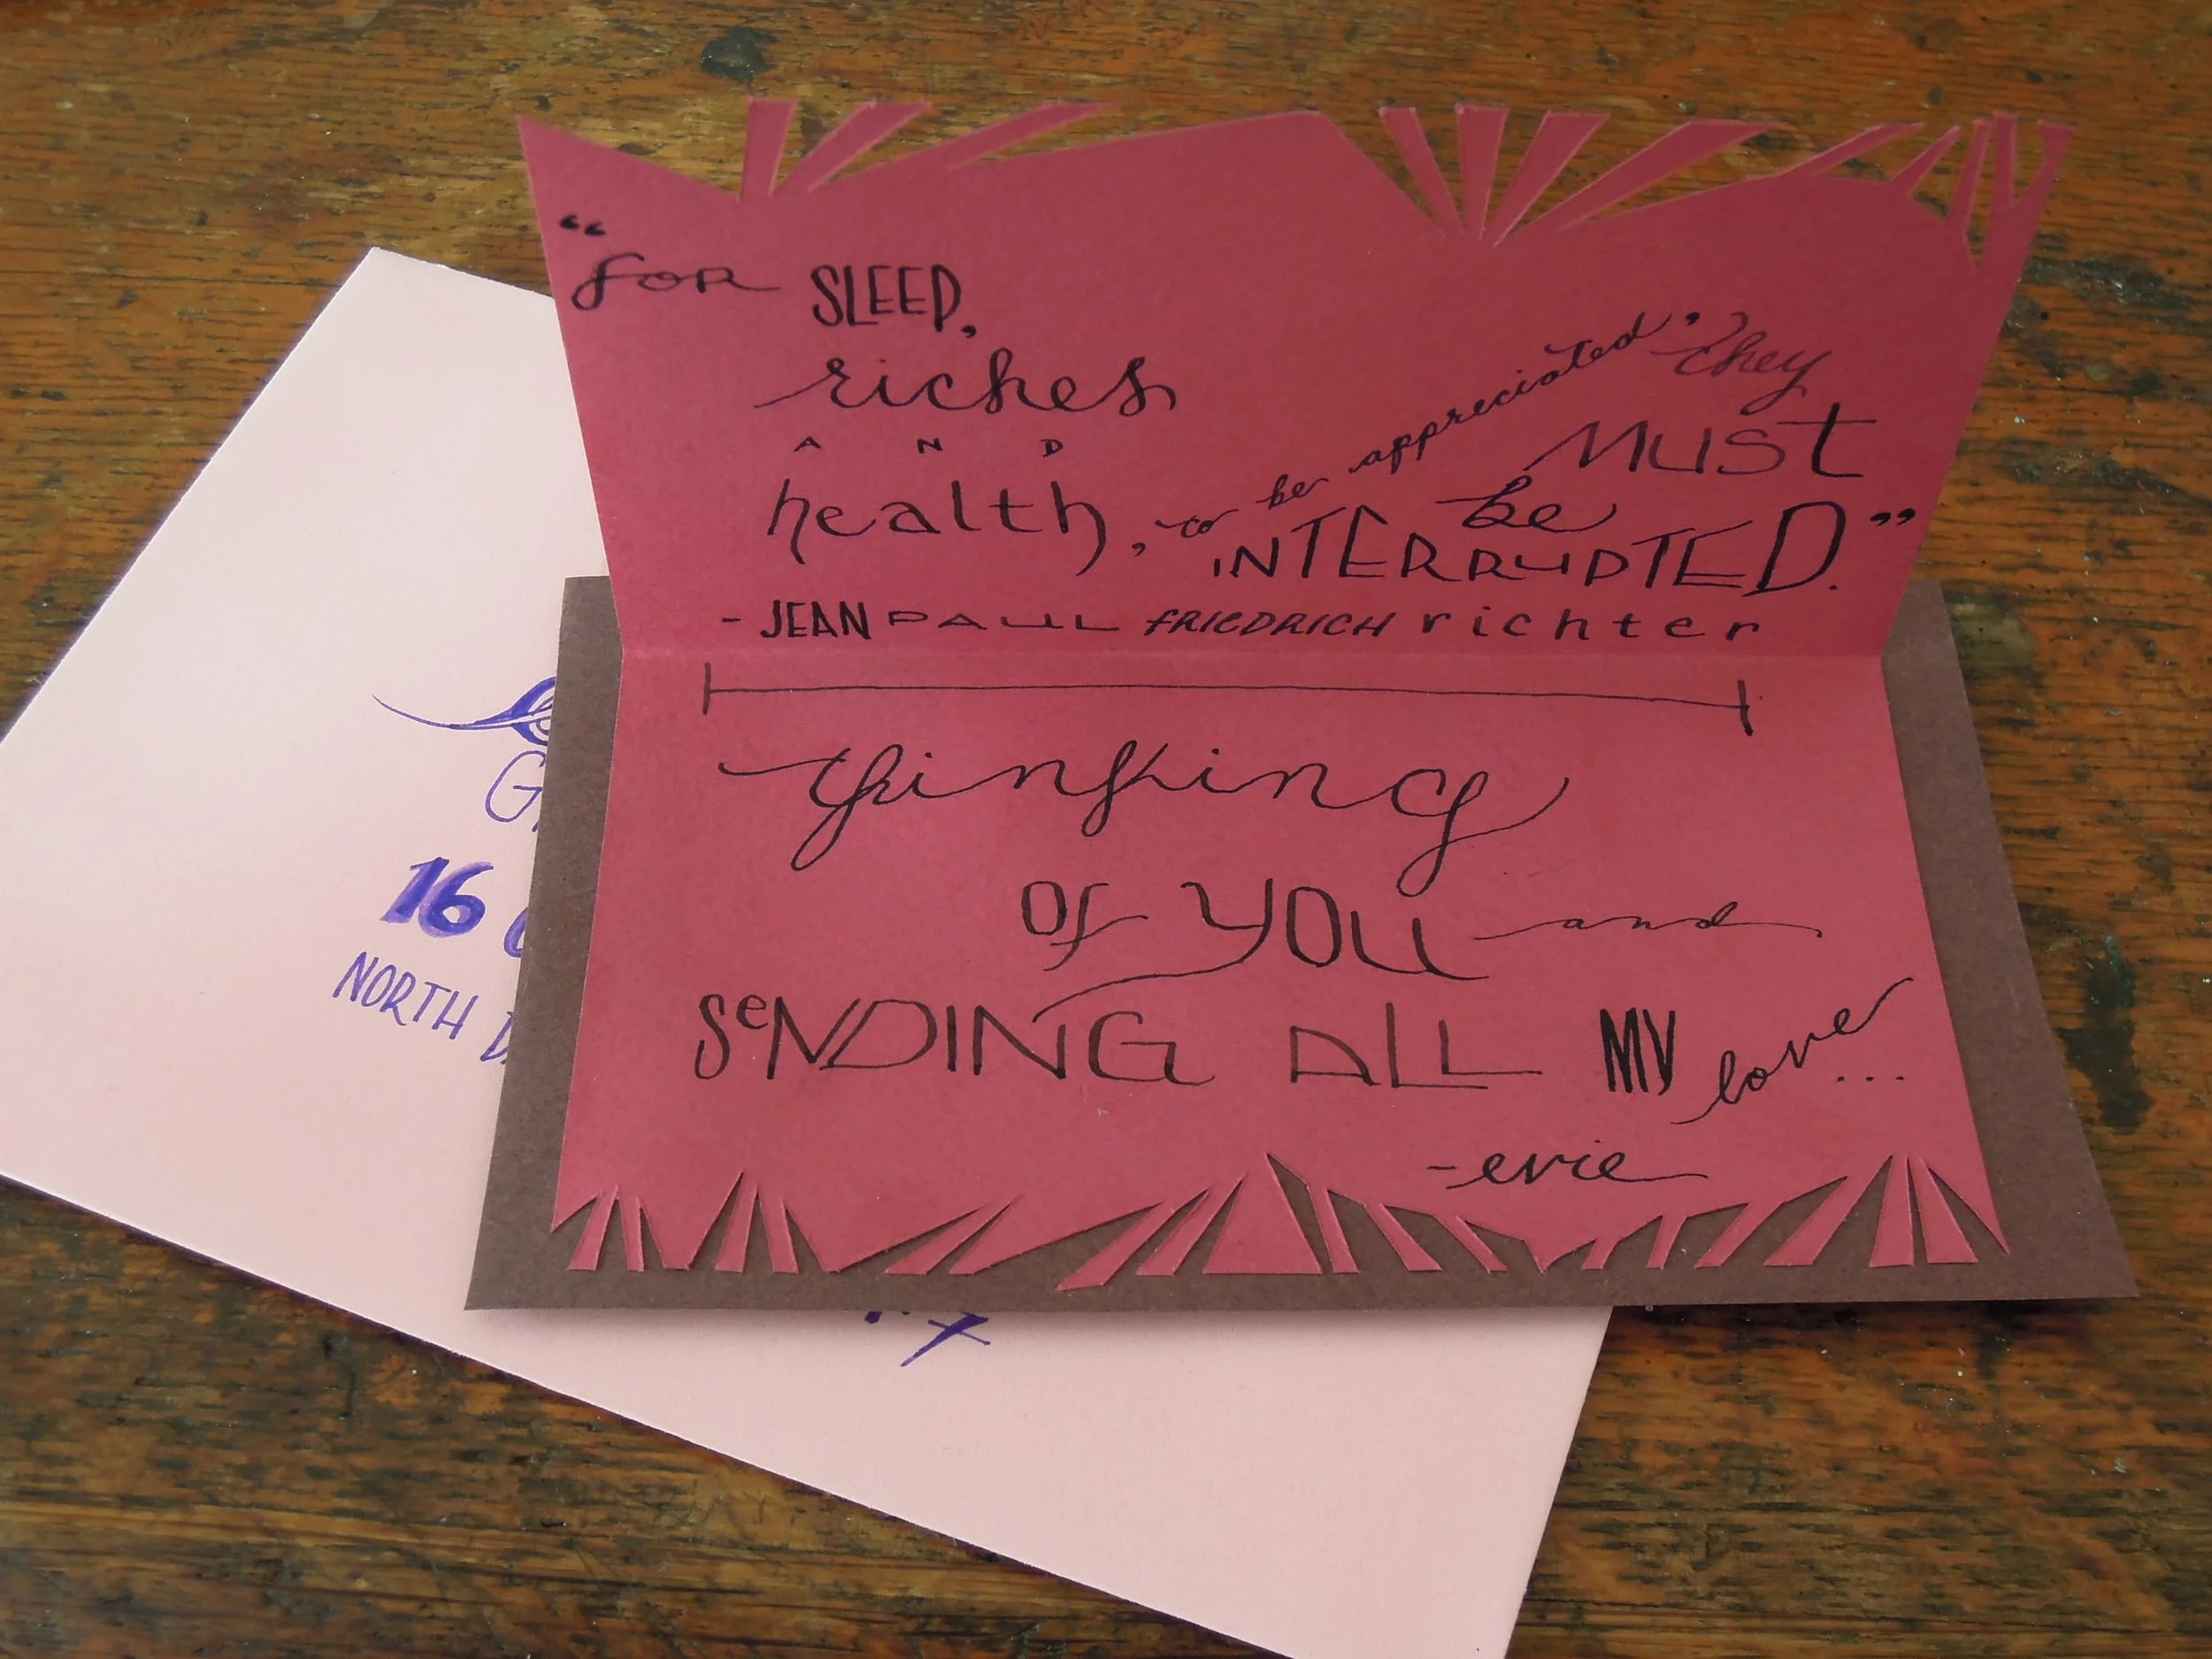 “
for SLEEP,
riches
AND
health, to be appreciated, they
MUST
be
INTERRUPTED.”
- JEAN PAUL FRIEDRICH richter
thinking
of YOU and
SeNDING ALL MY love...
-evie
16
NORTH